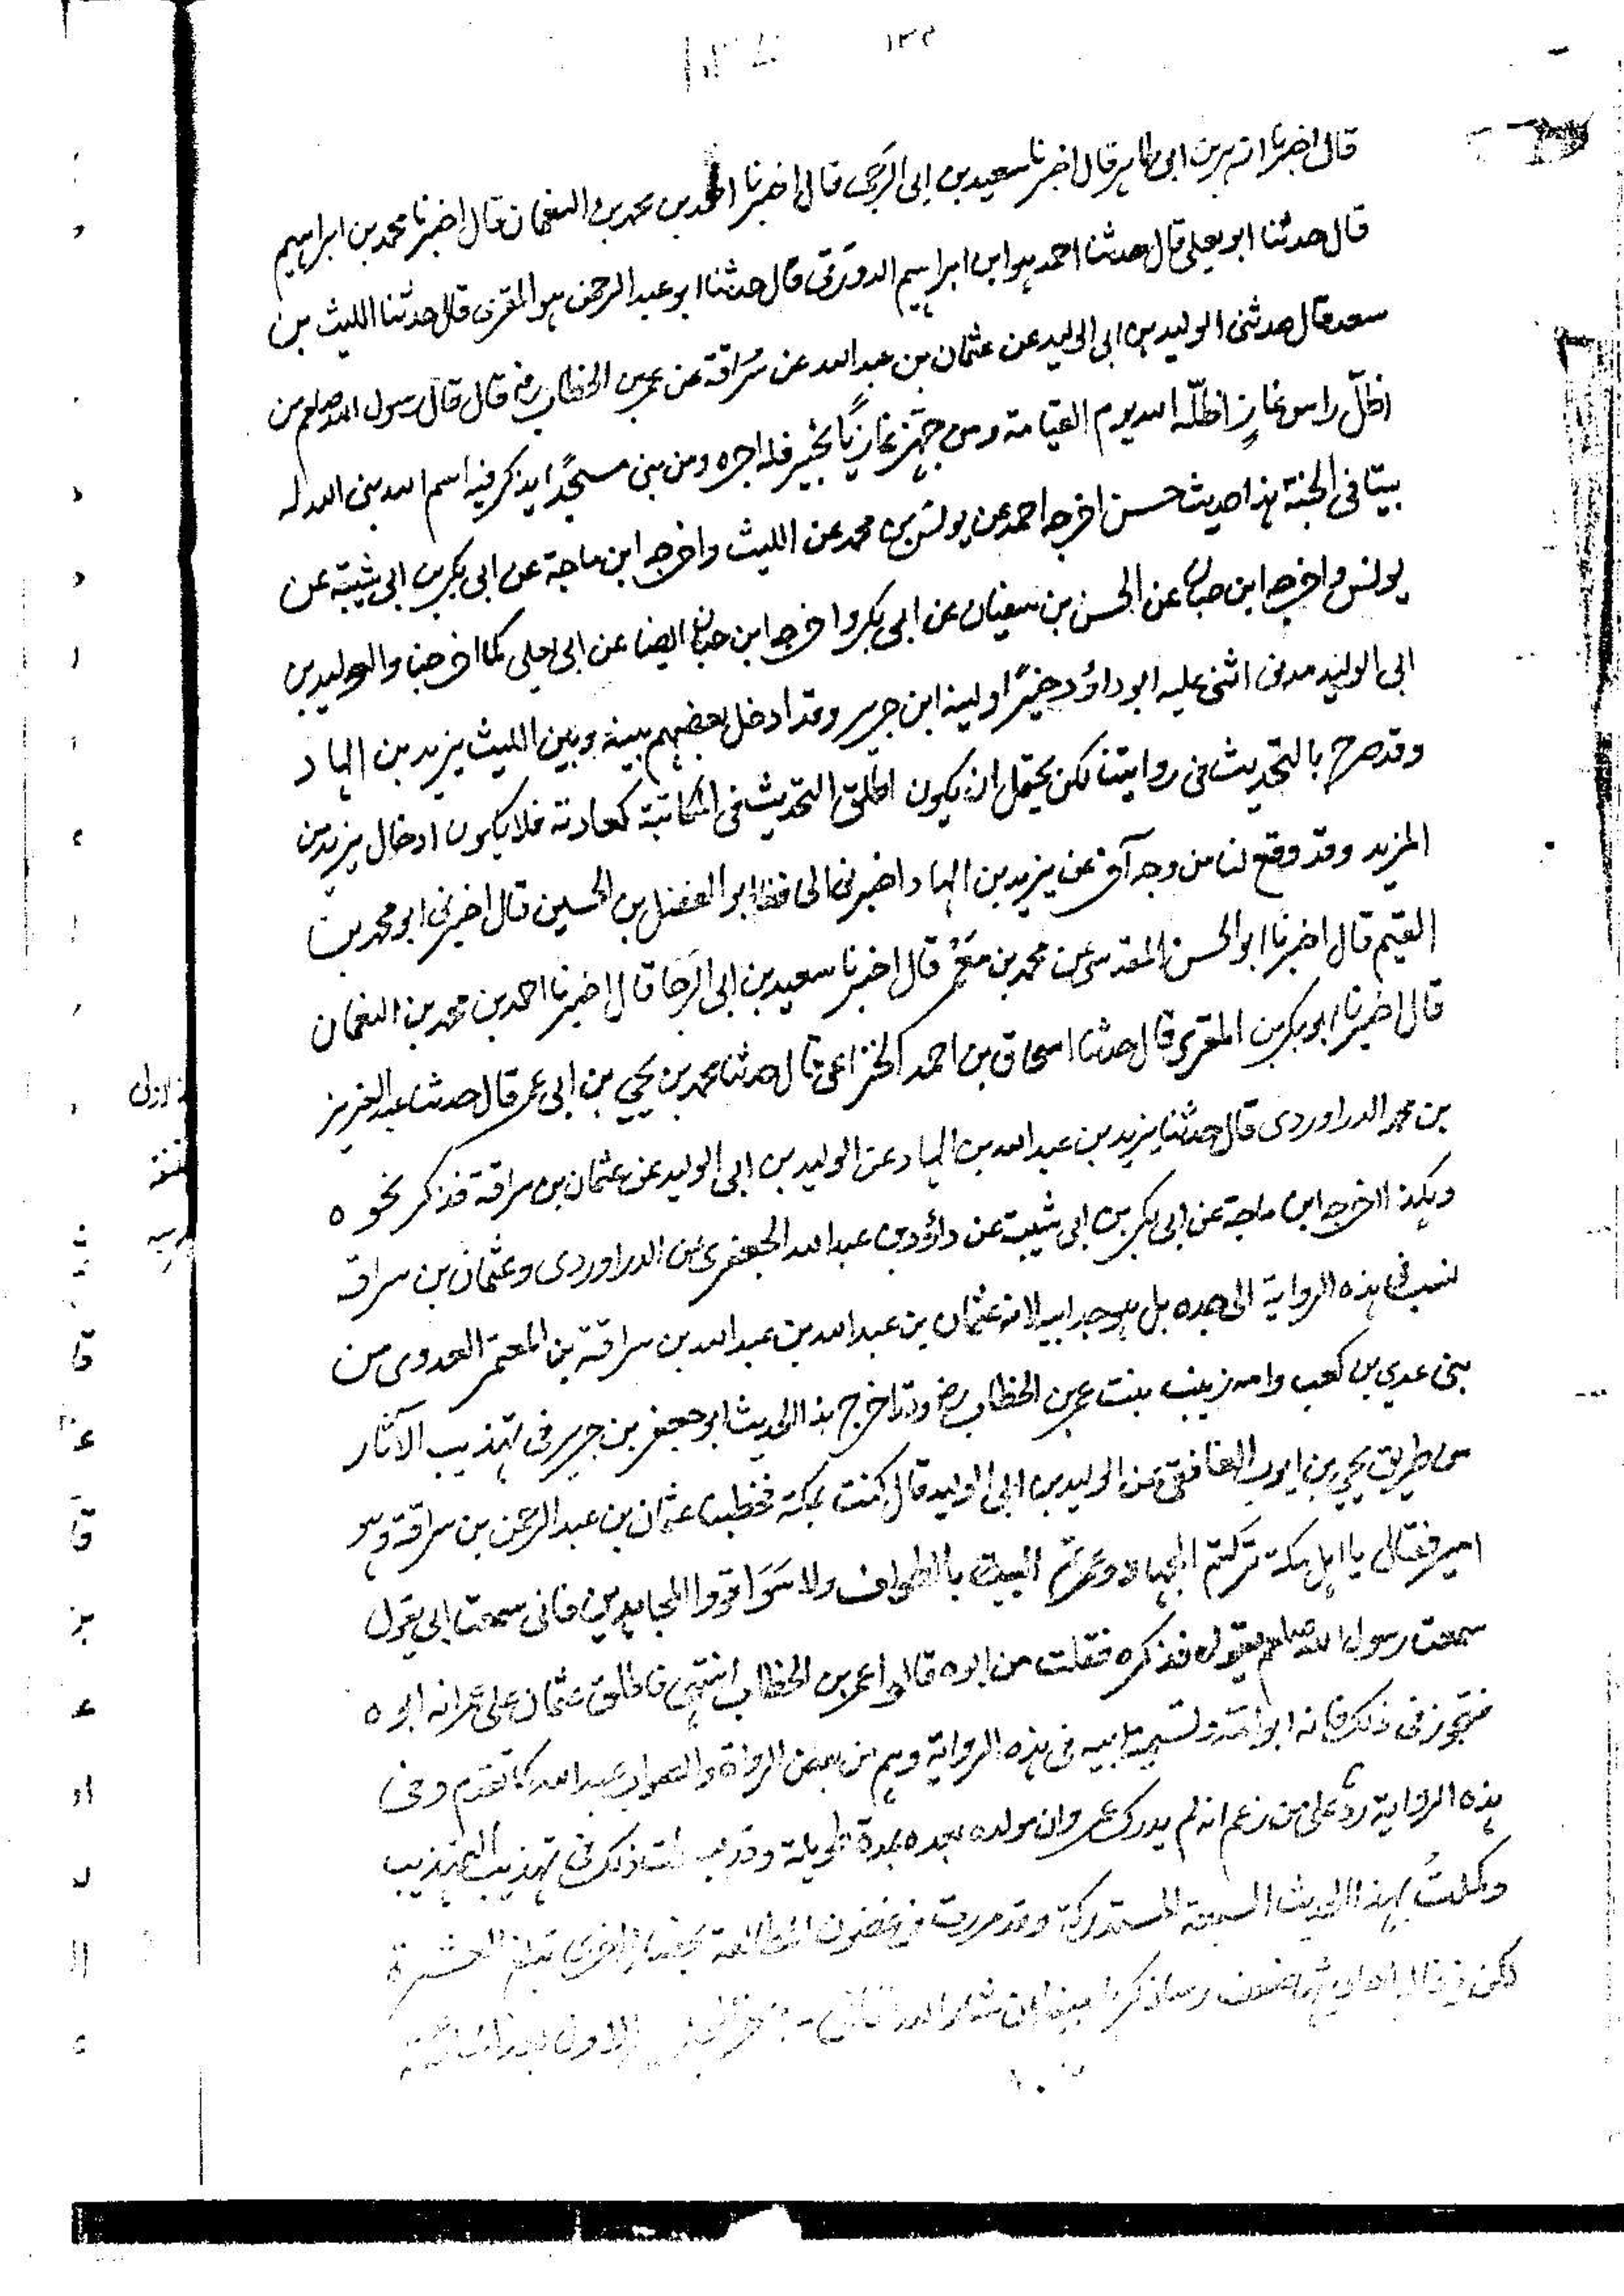 ١٣٤
قال اخبرنا زاهر بن ابى طاهر قال اخبرنا سعيد بن ابى الرجا قال اخبرنا احمد بن محمد بن النعمان قال اخبرنا محمد بن ابراهيم
قال حدثنا ابو يعلى قال حدثنا احمد هو ابن ابراهيم الدورقى قال حدثنا ابو عبد الرحمن هو المقرى قال حدثنا الليث بن
سعد قال حدثنى الوليد بن ابى الوليد عن عثمان بن عبد الله عن سُراقة عن عمر بن الخطاب رض قال قال رسول الله صلعم من
اظلّ راس غازٍ اظلّه الله يوم القيامة ومن جهّز غازيًا بخير فله اجره ومن بنى مسجدًا يذكر فيه اسم الله بنى الله له
بيتا فى الجنة هذا حديث حسن اخرجه احمد عن يونس بن محمد عن الليث واخرجه ابن ماجة عن ابى بكر بن ابى شيبة عن
يونس واخرجه ابن حبان عن الحسن بن سفيان عن ابى بكر واخرجه ابن حبان ايضا عن ابى يعلى كما اخرجنا والوليد بن
ابى الوليد مدنى اثنى عليه ابو داؤد خيرًا ولينه ابن جرير وقد ادخل بعضهم بينه وبين الليث يزيد بن الهاد
وقد صرح بالتحديث فى روايتنا لكن يحتمل ان يكون اطلق التحديث فى المكاتبة كعادته فلا يكون ادخال يزيد من
المزيد وقد وقع لنا من وجه آخر عن يزيد بن الهاد اخبرنى الحافظ ابو الفضل بن الحسين قال اخبرنى ابو محمد بن
القيم قال اخبرنا ابو الحسن المقدسى عن محمد بن مَعْمَر قال اخبرنا سعيد بن ابى الرَجَا قال اخبرنا احمد بن محمد بن النعمان
قال اخبرنا ابو بكر بن المقرى قال حدثنا اسحاق بن احمد الخزاعى قال حدثنا محمد بن يحيى بن ابى عمر قال حدثنا عبد العزيز
بن محمد الدراوردى قال حدثنا يزيد بن عبد الله بن الهاد عن الوليد بن ابى الوليد عن عثمان بن سراقة فذكر نحوه
وهكذا اخرجه ابن ماجة عن ابى بكر بن ابى شيبة عن داؤد بن عبد الله الجعفرى عن الدراوردى وعثمان بن سراقه
نسب فى هذه الرواية الى جده بل هو جد ابيه لانه عثمان بن عبد الله بن عبد الله بن سراقة بن المعتمر العدوى من
بنى عدى بن كعب وامه زينب بنت عمر بن الخطاب رض وقد اخرج هذا الحديث ابو جعفر بن جرير فى تهذيب الآثار
من طريق يحيى بن ايوب الغافقى عن الوليد بن ابى الوليد قال كنت بمكة فخطبنا عثمان بن عبد الرحمن بن سراقة وهو
امير فقال يا اهل مكة تركتم الجهاد وعمرتم البيت بالطواف ولا سَوَا قووا المجاهدين فانى سمعت ابى يقول
سمعت رسول الله صلعم يقول فذكره فقلت من ابوه قالوا عمر بن الخطاب انتهى فاطلق عثمان على عمر انه ابوه
فتجوز فى ذلك فانه ابو امه وتسمية ابيه فى هذه الرواية وهم من بعض الرواة والصواب عبد الله كما تقدم وفى
هذه الرواية ردّ على من زعم انه لم يدرك عمر وان مولده بعده بمدة طويلة وقد بسطت ذلك فى تهذيب التهذيب
وكملت بهذا الحديث السبعة المستدركة وقد مررت فى غضون المطالعة بخصال اخرى تبلغ العشرة
لكن فى غالب اسانيدها ضعف وساذكرها ايضا ان شاء الله تعالى